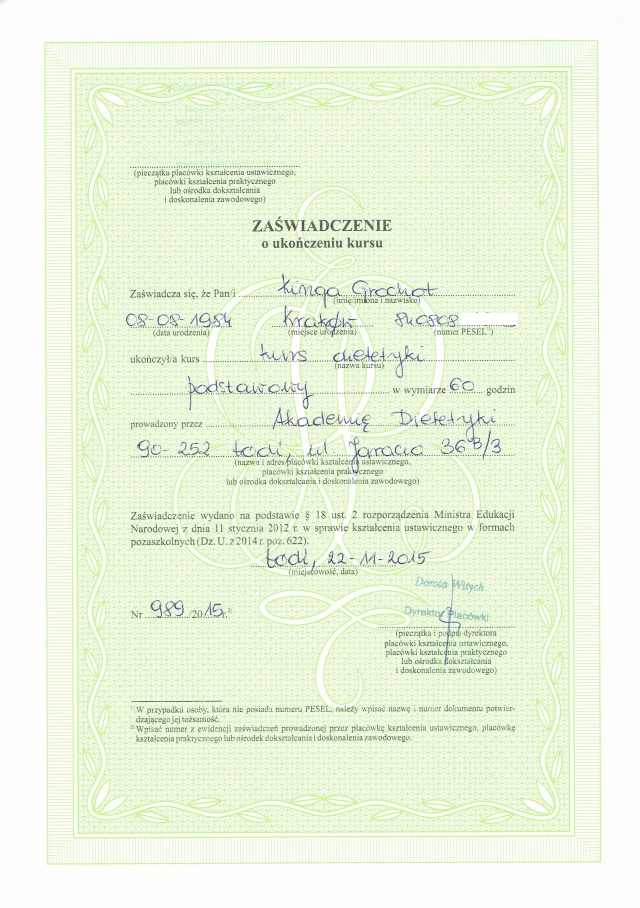 (pieczątka placówki kształcenia ustawicznego,
placówki kształcenia praktycznego
lub ośrodka dokształcania
i doskonalenia zawodowego)
ZAŚWIADCZENIE
o ukończeniu kursu
Zaświadcza się, że Pan/i Kinga Grochot
(imię/imiona i nazwisko)
08-08-1984 Kraków 840808
(data urodzenia) (miejsce urodzenia) (numer PESEL¹⁾)
ukończył/a kurs kurs dietetyki
(nazwa kursu)
podstawowy w wymiarze 60 godzin
prowadzony przez Akademię Dietetyki
90-252 Łodi, ul Jaracza 36B/3
(nazwa i adres placówki kształcenia ustawicznego,
placówki kształcenia praktycznego
lub ośrodka dokształcania i doskonalenia zawodowego)
Zaświadczenie wydano na podstawie § 18 ust. 2 rozporządzenia Ministra Edukacji
Narodowej z dnia 11 stycznia 2012 r. w sprawie kształcenia ustawicznego w formach
pozaszkolnych (Dz. U. z 2014 r. poz. 622).
Łodi, 22-11-2015
(miejscowość, data)
Dorota Witych
Nr 989 /2015r.²⁾
Dyrektor Placówki
(pieczątka i podpis dyrektora
placówki kształcenia ustawicznego,
placówki kształcenia praktycznego
lub ośrodka dokształcania
i doskonalenia zawodowego)
¹⁾ W przypadku osoby, która nie posiada numeru PESEL, należy wpisać nazwę i numer dokumentu potwier-
dzającego jej tożsamość.
²⁾ Wpisać numer z ewidencji zaświadczeń prowadzonej przez placówkę kształcenia ustawicznego, placówkę
kształcenia praktycznego lub ośrodek dokształcania i doskonalenia zawodowego.